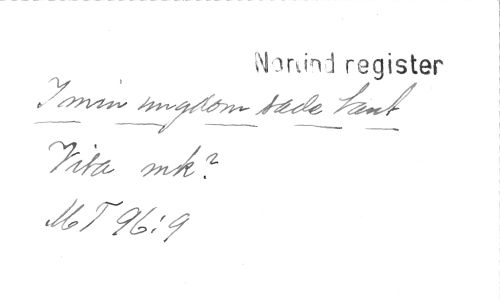 Norlind register
I min ungdom sade tant
Visa mk?
MT 96:9